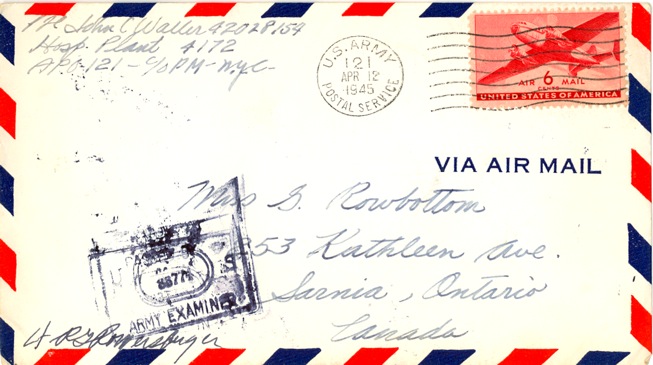 Pfc John C Waller 42028154
Hosp. Plant 4172
APO 121 - c/o PM - N.Y.C.
U.S. ARMY
121
APR 12
1945
POSTAL SERVICE
AIR 6 MAIL
CENTS
UNITED STATES OF AMERICA
VIA AIR MAIL
Miss G. Rowbottom
253 Kathleen Ave.
Sarnia, Ontario
Canada
ARMY EXAMINER